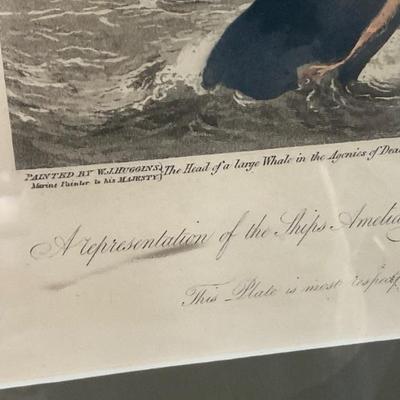 PAINTED BY W.J.HUGGINS,
Marine Painter to his MAJESTY.
The Head of a large Whale in the Agonies of Dea
A representation of the Ships Amelia
This Plate is most respectf